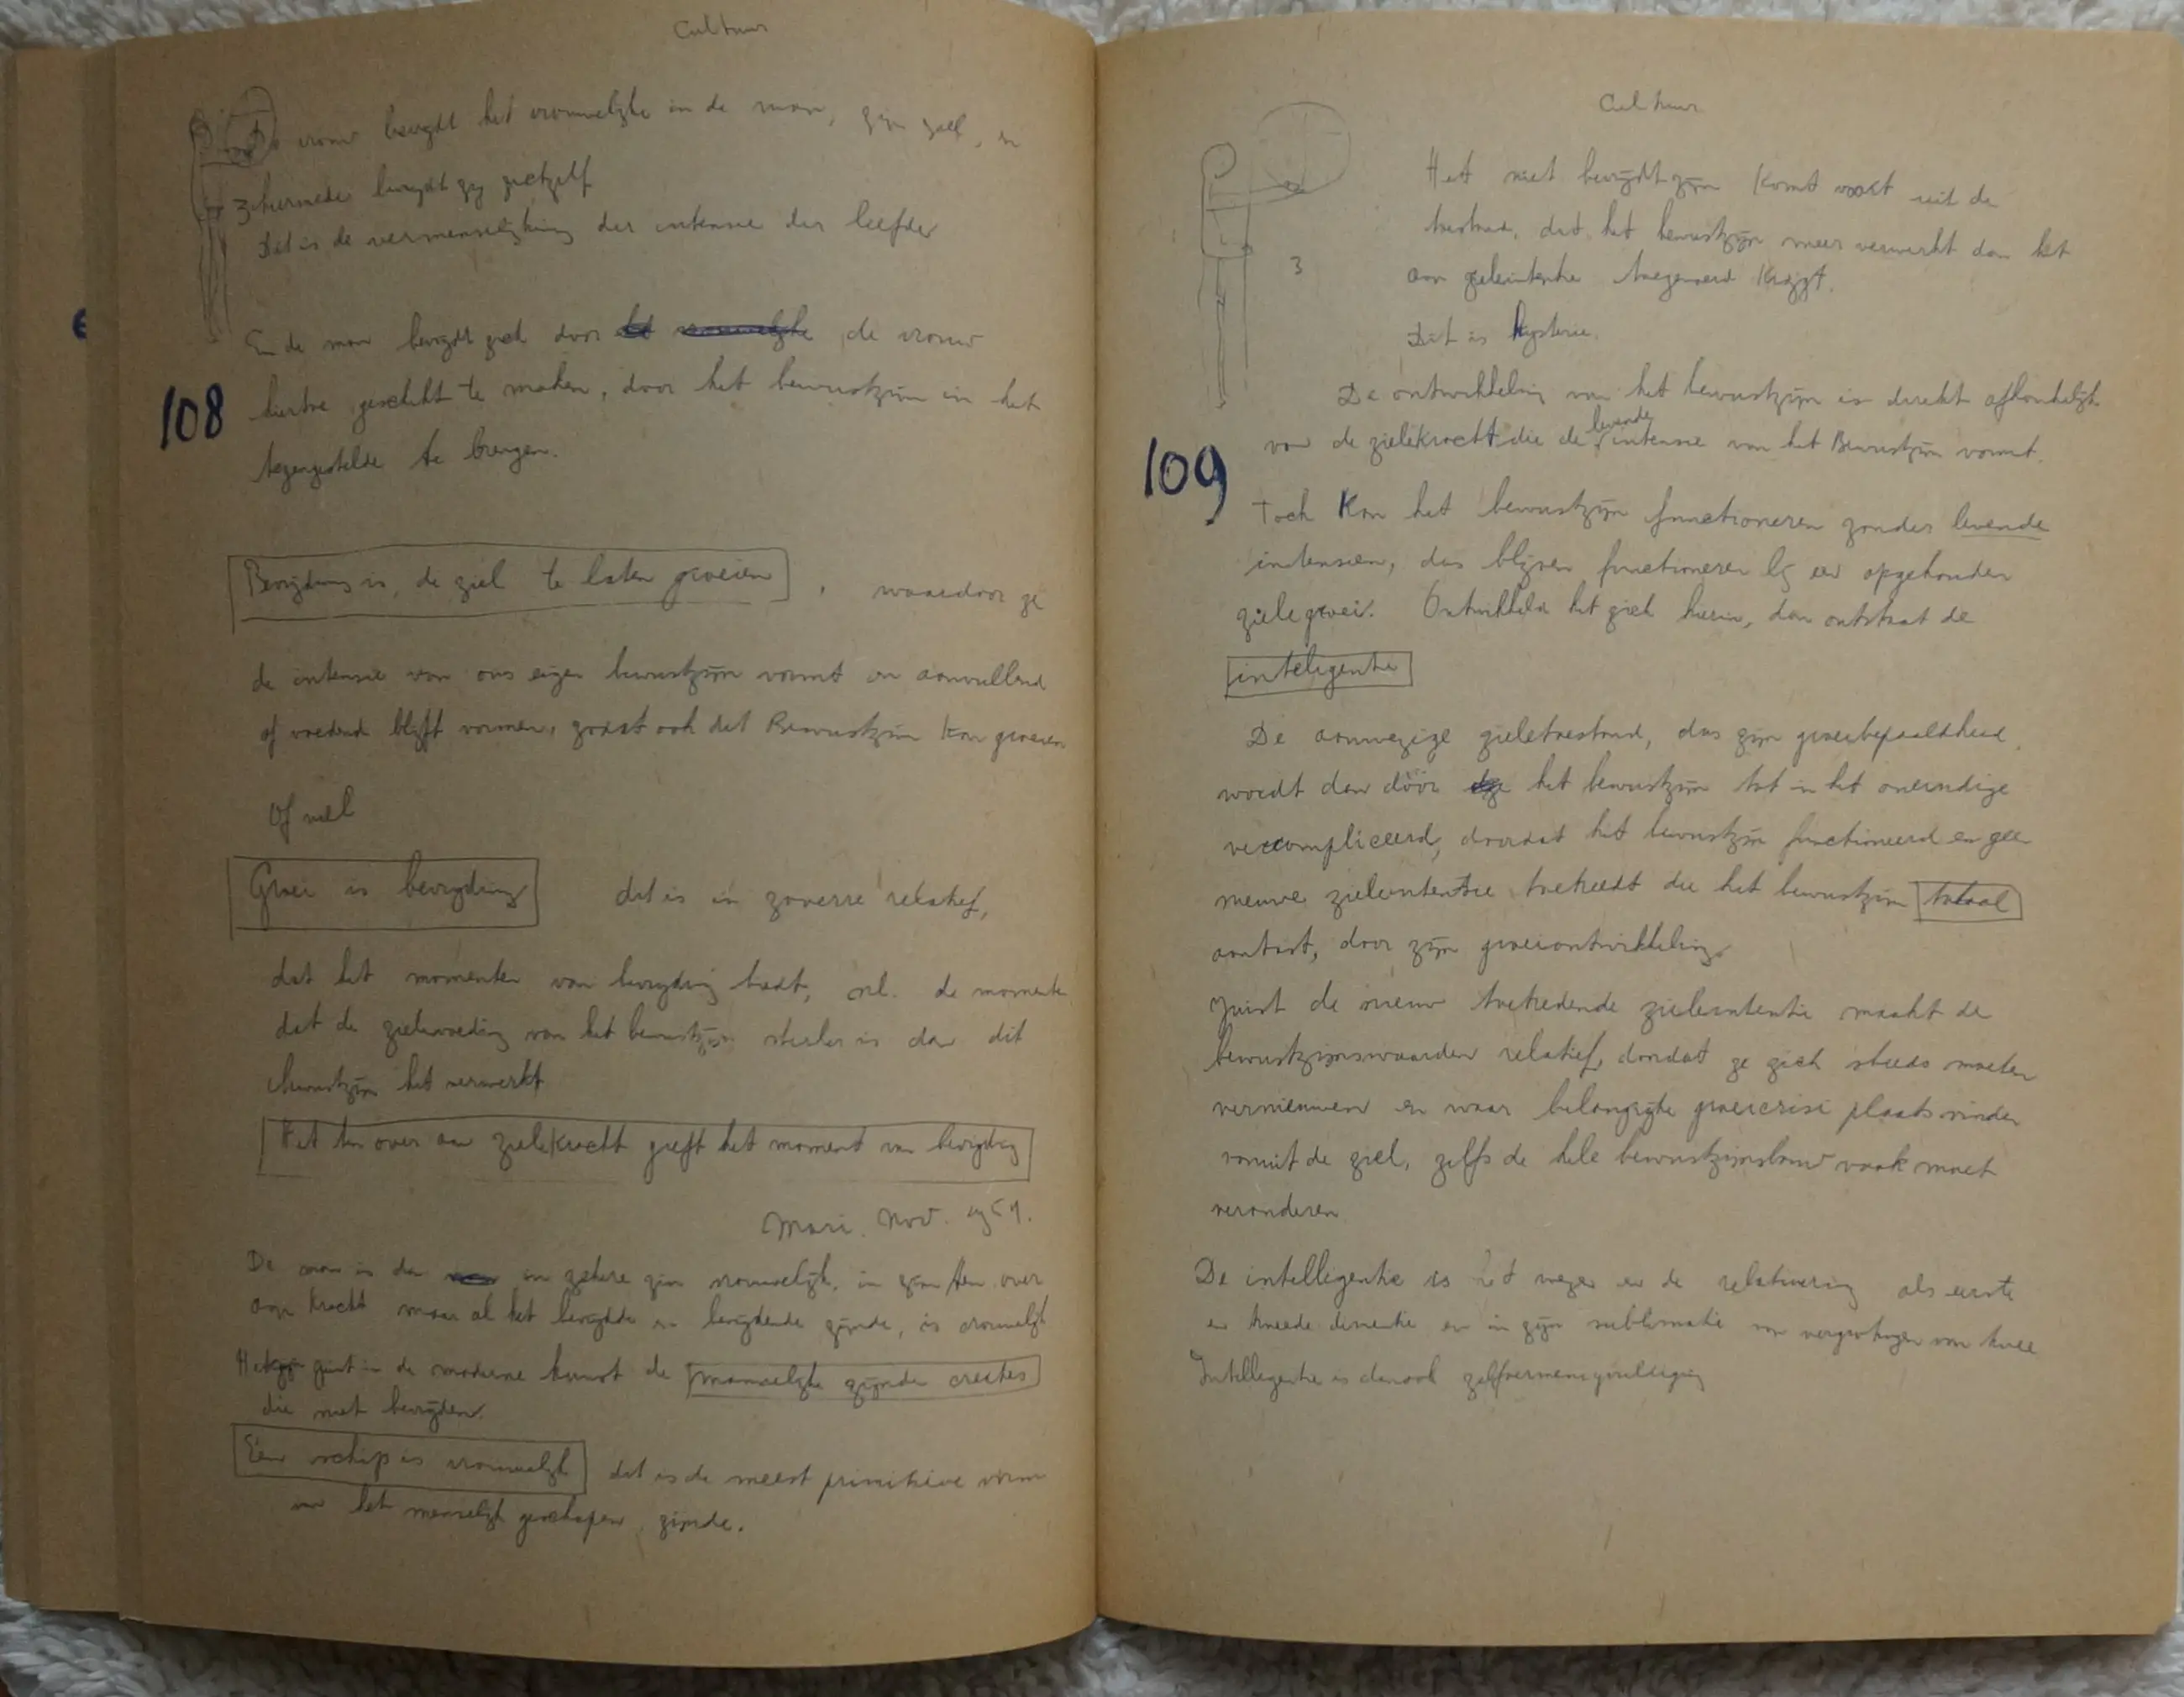 Cultuur
De vrouw bevrijdt het vrouwelijke in de man, zijn ziel, en
hiermede bevrijdt zij zichzelf
Dit is de vermenselijking der intensie der liefde
En de man bevrijdt zich door de vrouw
108
hiertoe geschikt te maken, door het bewustzijn in het
tegengestelde te brengen.
Bevrijding is, de ziel te laten groeien, waardoor ze
de intensie van ons eigen bewustzijn vormt en aanvullend
of voedend blijft vormen, zodat ook dit Bewustzijn kan groeien
Of wel
Groei is bevrijding dit is in zoverre relatief,
dat het momenten van bevrijding biedt, nl. de momenten
dat de zielevoeding van het bewustzijn sterker is dan dit
bewustzijn het verwerkt
Het ten over aan zielekracht geeft het moment van bevrijding
Mari. Nov.
De man is dan in zekere zin vrouwelijk, in zijn ten over
aan kracht maar al het bevrijdde en bevrijdende zijnde, is vrouwelijk
Het in de moderne kunst de mannelijke zijnde creaties
die niet bevrijden.
Een schip is vrouwelijk dit is de meest primitieve vorm
van het menselijk geschapen zijnde.
Cultuur
Het niet bevrijdt zijn komt voort uit de
toestand, dat het bewustzijn meer verwerkt dan het
aan zieleintentie toegevoerd krijgt.
3
Dit is hysterie.
De ontwikkeling van het bewustzijn is direkt afhankelijk
van de zielekracht die de levende intensie van het Bewustzijn vormt.
109
Toch kan het bewustzijn functioneren zonder levende
intensieen, dus blijven functioneren bij een opgehouden
zielegroei. Ontwikkeld het zich hierin, dan ontstaat de
inteligentie
De aanwezige zieletoestand, dus zijn groeibepaaldheid
wordt dan dóór het bewustzijn tot in het oneindige
vercompliceerd, doordat het bewustzijn functioneerd en geen
nieuwe zieleintentie toetreedt die het bewustzijn totaal
aantast, door zijn groeiontwikkeling.
Juist de nieuw toetredende zieleintentie maakt de
bewustzijnswaarden relatief, doordat ze zich steeds moeten
vernieuwen en waar belangrijke groeicrisi plaatsvinden
vanuit de ziel, zelfs de hele bewustzijnsbouw vaak moet
veranderen
De intelligentie is het wegen en de relativering als eerste
en tweede dimentie en in zijn sublimatie van vergrotingen van twee
Intelligentie is denool zelfvermenigvuldiging